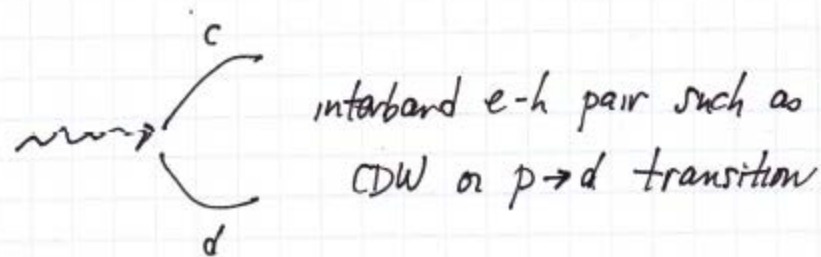 c
interband e-h pair such as
CDW or p→d transition
d